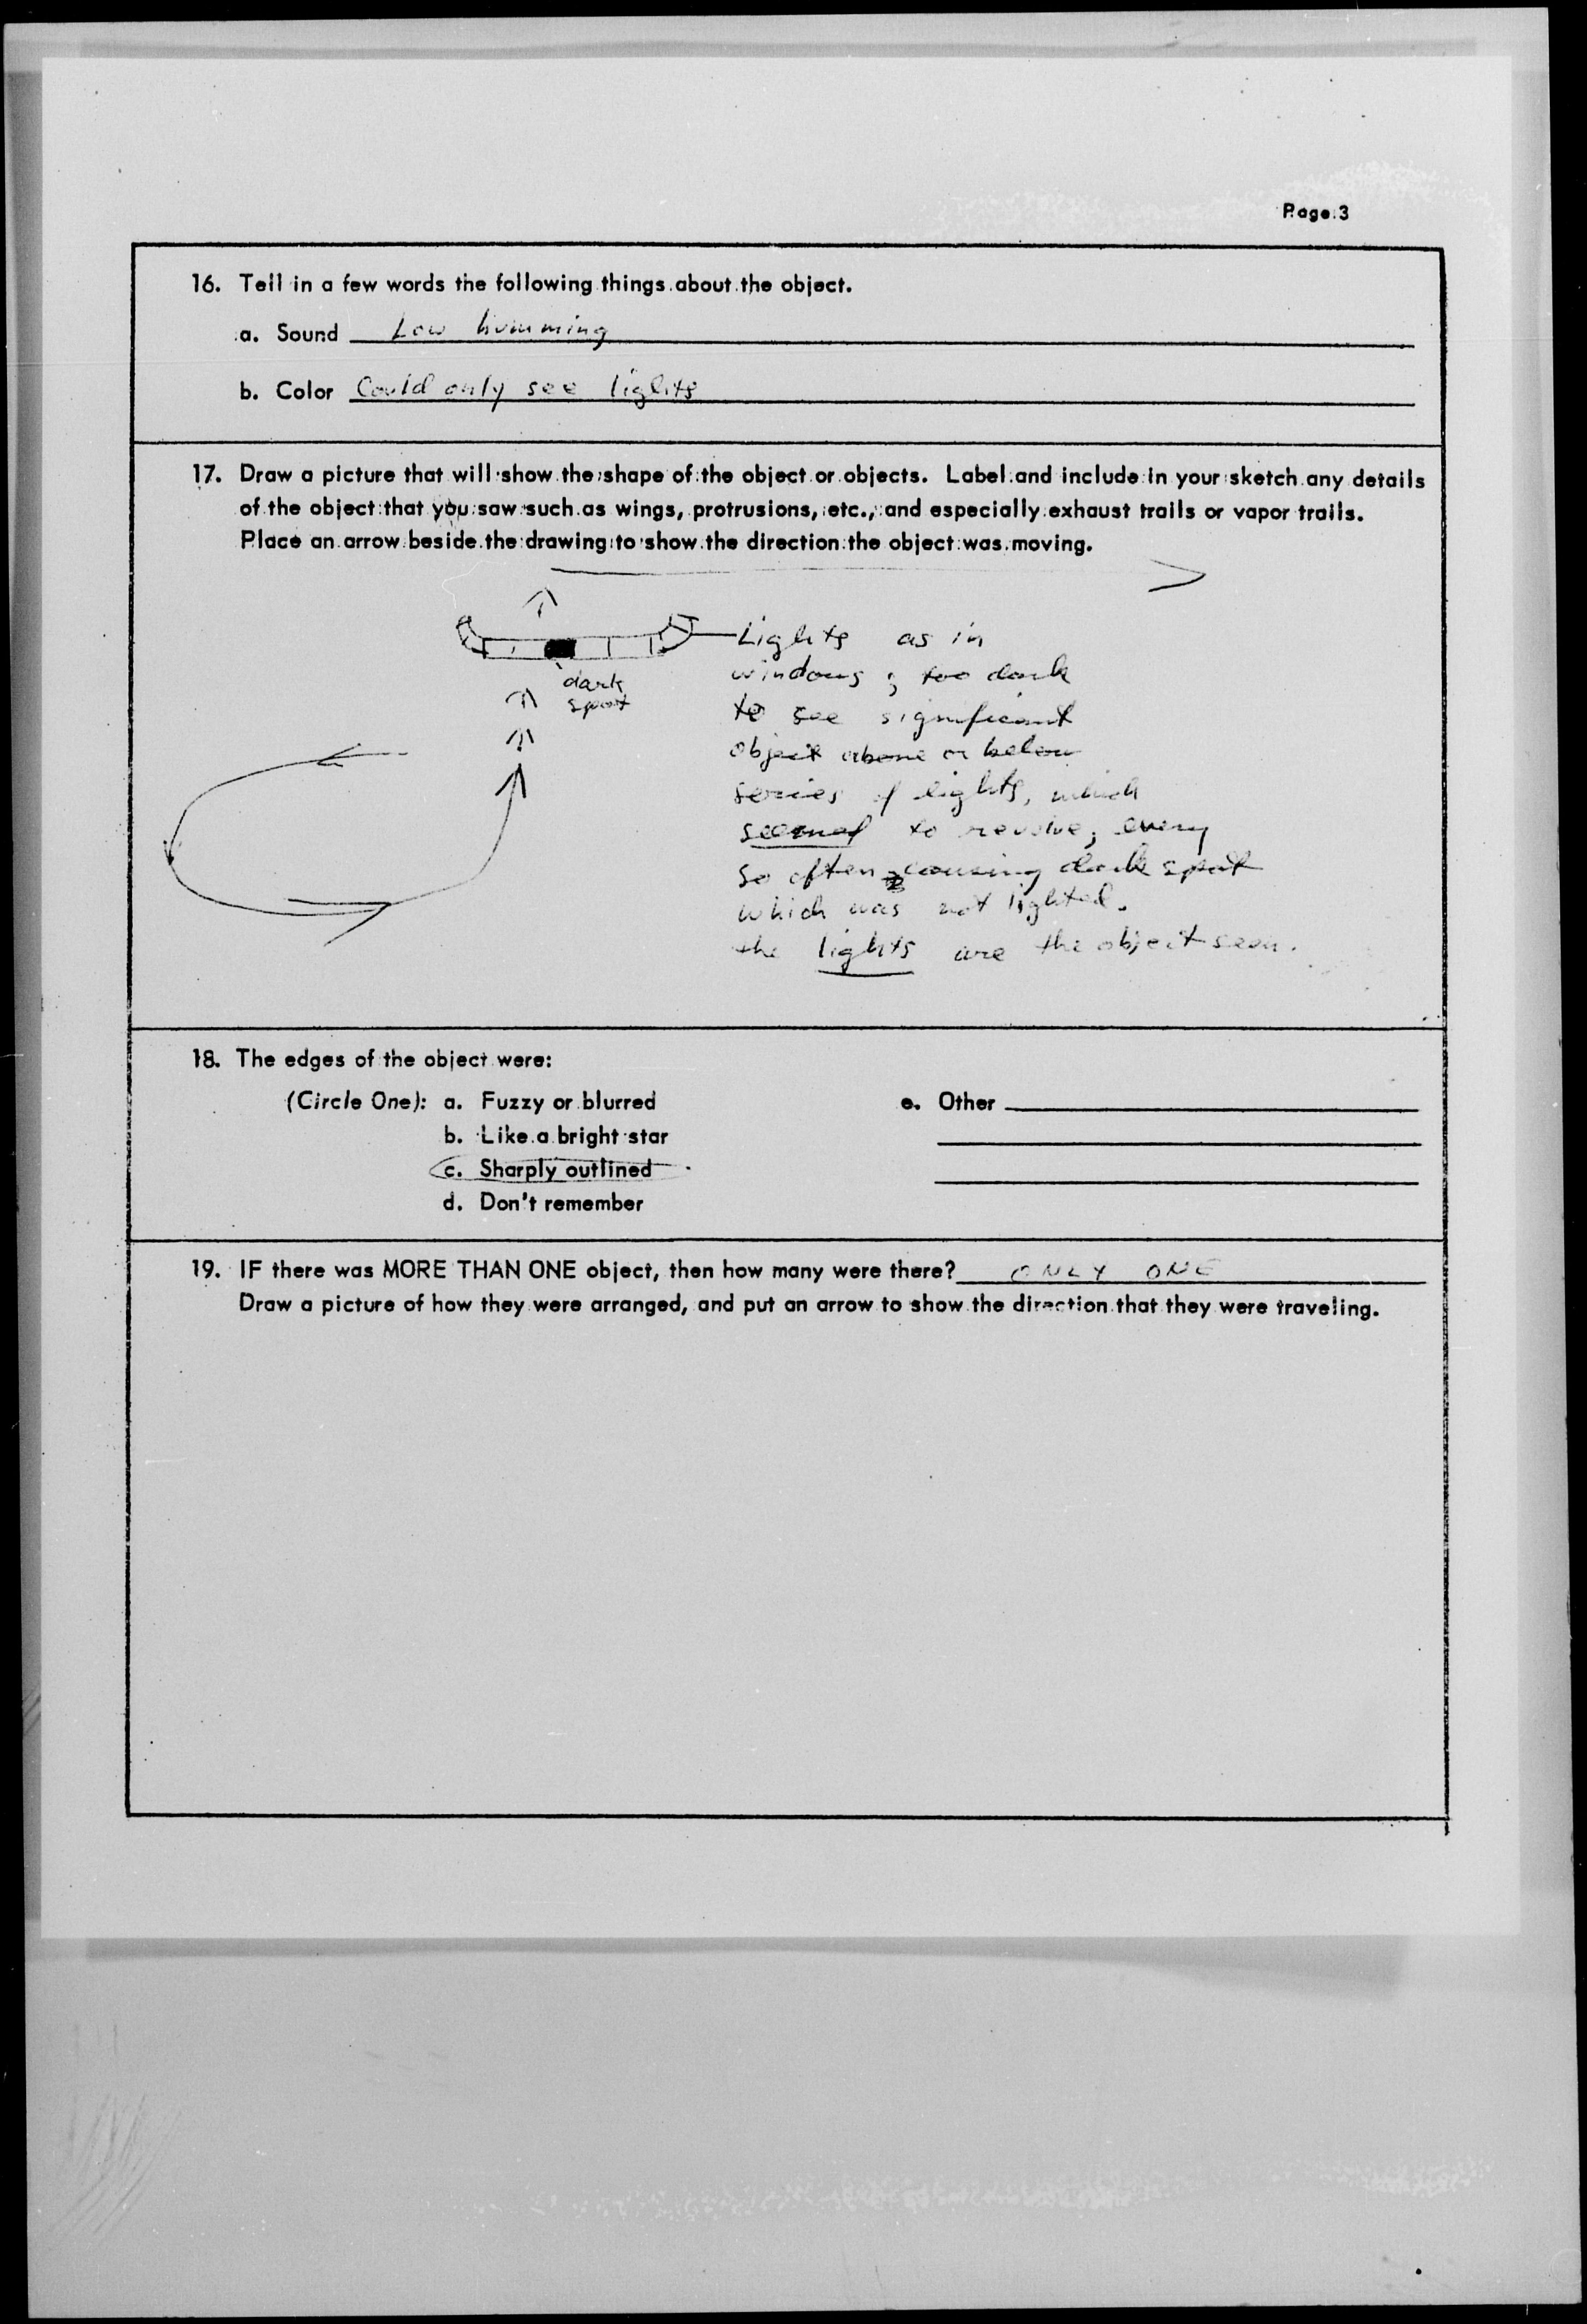 Page 3
16. Tell in a few words the following things about the object.
a. Sound Low humming
b. Color Could only see lights
17. Draw a picture that will show the shape of the object or objects. Label and include in your sketch any details
of the object that you saw such as wings, protrusions, etc., and especially exhaust trails or vapor trails.
Place an arrow beside the drawing to show the direction the object was moving.
dark
spot
Lights as in
windows; too dark
to see significant
object above or below
series of lights, which
seemed to revolve, every
so often causing dark spot
which was not lighted.
the lights are the object seen.
18. The edges of the object were:
(Circle One): a. Fuzzy or blurred
b. Like a bright star
c. Sharply outlined
d. Don't remember
e. Other
19. IF there was MORE THAN ONE object, then how many were there? ONLY ONE
Draw a picture of how they were arranged, and put an arrow to show the direction that they were traveling.